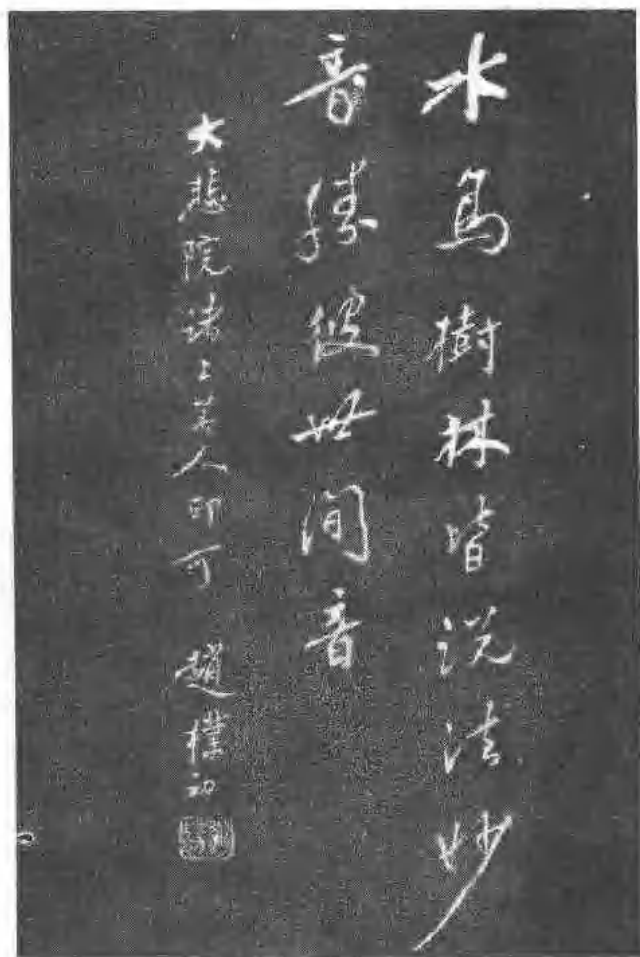 水鳥樹林皆说法妙
音勝彼世间音
大悲院诸上善人印可 趙樸初